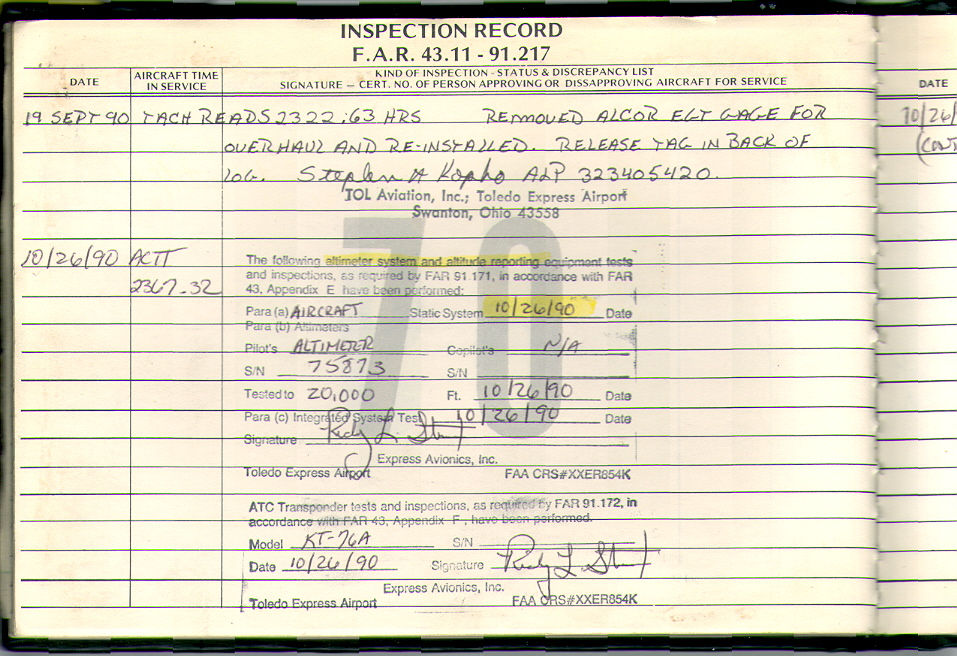 INSPECTION RECORD
F.A.R. 43.11 - 91.217
DATE
AIRCRAFT TIME IN SERVICE
KIND OF INSPECTION - STATUS & DISCREPANCY LIST
SIGNATURE — CERT. NO. OF PERSON APPROVING OR DISSAPPROVING AIRCRAFT FOR SERVICE
DATE
19 SEPT 90 TACH READS 2322.63 HRS REMOVED ALCOR EGT GAGE FOR
OVERHAUL AND RE-INSTALLED. RELEASE TAG IN BACK OF
LOG. Stephen A A&P 323405420.
TOL Aviation, Inc.; Toledo Express Airport
Swanton, Ohio 43558
10/26/
70
10/26/90 ACTT
2367.32
The following altimeter system and altitude reporting equipment tests
and inspections, as required by FAR 91.171, in accordance with FAR
43, Appendix E have been performed:
Para (a) AIRCRAFT Static System 10/26/90 Date
Para (b) Altimeters
Pilot's ALTIMETER Copilot's N/A
S/N 75873 S/N
Tested to 20,000 Ft. 10/26/90 Date
Para (c) Integrated System Test 10/26/90 Date
Signature
Express Avionics, Inc.
Toledo Express Airport FAA CRS#XXER854K
ATC Transponder tests and inspections, as required by FAR 91.172, in
accordance with FAR 43, Appendix F, have been performed.
Model KT-76A S/N
Date 10/26/90 Signature
Express Avionics, Inc.
Toledo Express Airport FAA CRS#XXER854K